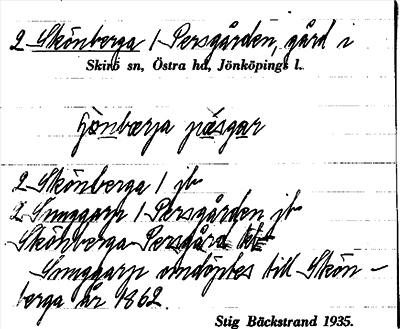 2 Skönberga / Persgården, gård i
Skirö sn, Östra hd, Jönköpings l.
ʃönbærja päsgar
2 Skönberga / jb
2 Snuggarp / Persgården jb
Skönberga Persgård
Snuggarp omdöptes till Skön-
berga år 1862.
Stig Bäckstrand 1935.